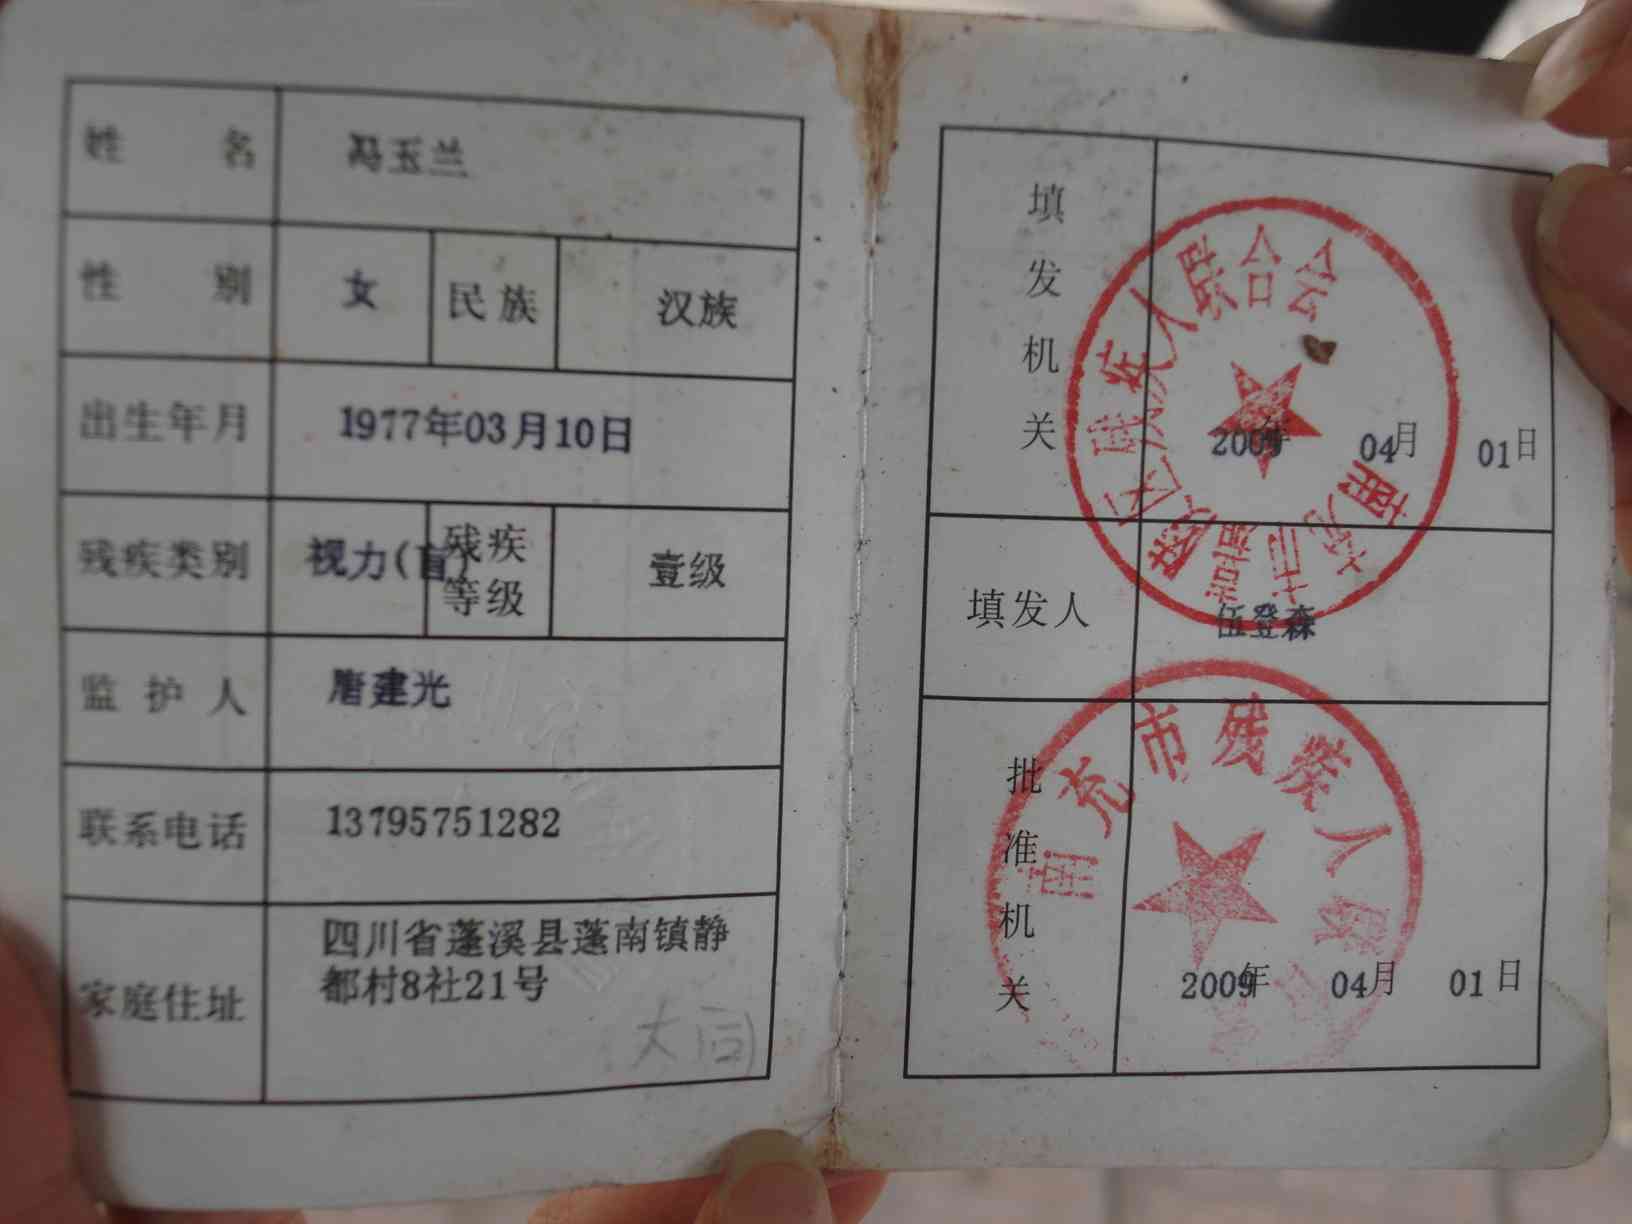 姓名 冯玉兰
性别 女 民族 汉族
出生年月 1977年03月10日
残疾类别 视力(盲) 残疾等级 壹级
监护人 唐建光
联系电话 13795751282
家庭住址 四川省蓬溪县蓬南镇静
都村8社21号
大同
填发机关
南充市嘉陵区残疾人联合会
2009年 04月 01日
填发人 伍登森
批准机关
南充市残疾人联合会
2009年 04月 01日